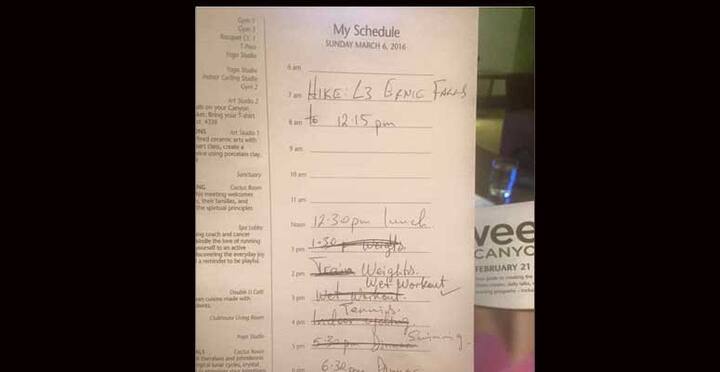 Gym 1
Gym 3
Racquet Ct. 1
T Pool
Yoga Studio
Yoga Studio
Indoor Cycling Studio
Gym 2
Art Studio 2
on your Canyon
Bring your T-shirt
4338
Art Studio 1
fired ceramic arts with
class, create a
using porcelain clay.
Sanctuary
Cactus Room
meeting welcomes
their families, and
the spiritual principles
Spa Lobby
coach and cancer
the love of running
yourself to an active
discovering the everyday joy
a reminder to be playful.
Double U Café
cuisine made with
Clubhouse Living Room
Yoga Studio
Cactus Room
lunar cycles, crystal
My Schedule
SUNDAY MARCH 6, 2016
6 am
7 am HIKE: L3 ERNIE FALLS
8 am to 12.15 pm
9 am
10 am
11 am
Noon 12.30 pm Lunch
1 pm 1.30 p Weights
2 pm Train Weights.
Wet Workout
3 pm Wet Workout.
Tennis.
4 pm Indoor cycling
Swimming.
5 pm 5.30 pm Dinner
6 pm 6.30 pm Dinner
wee
CANYO
FEBRUARY 21